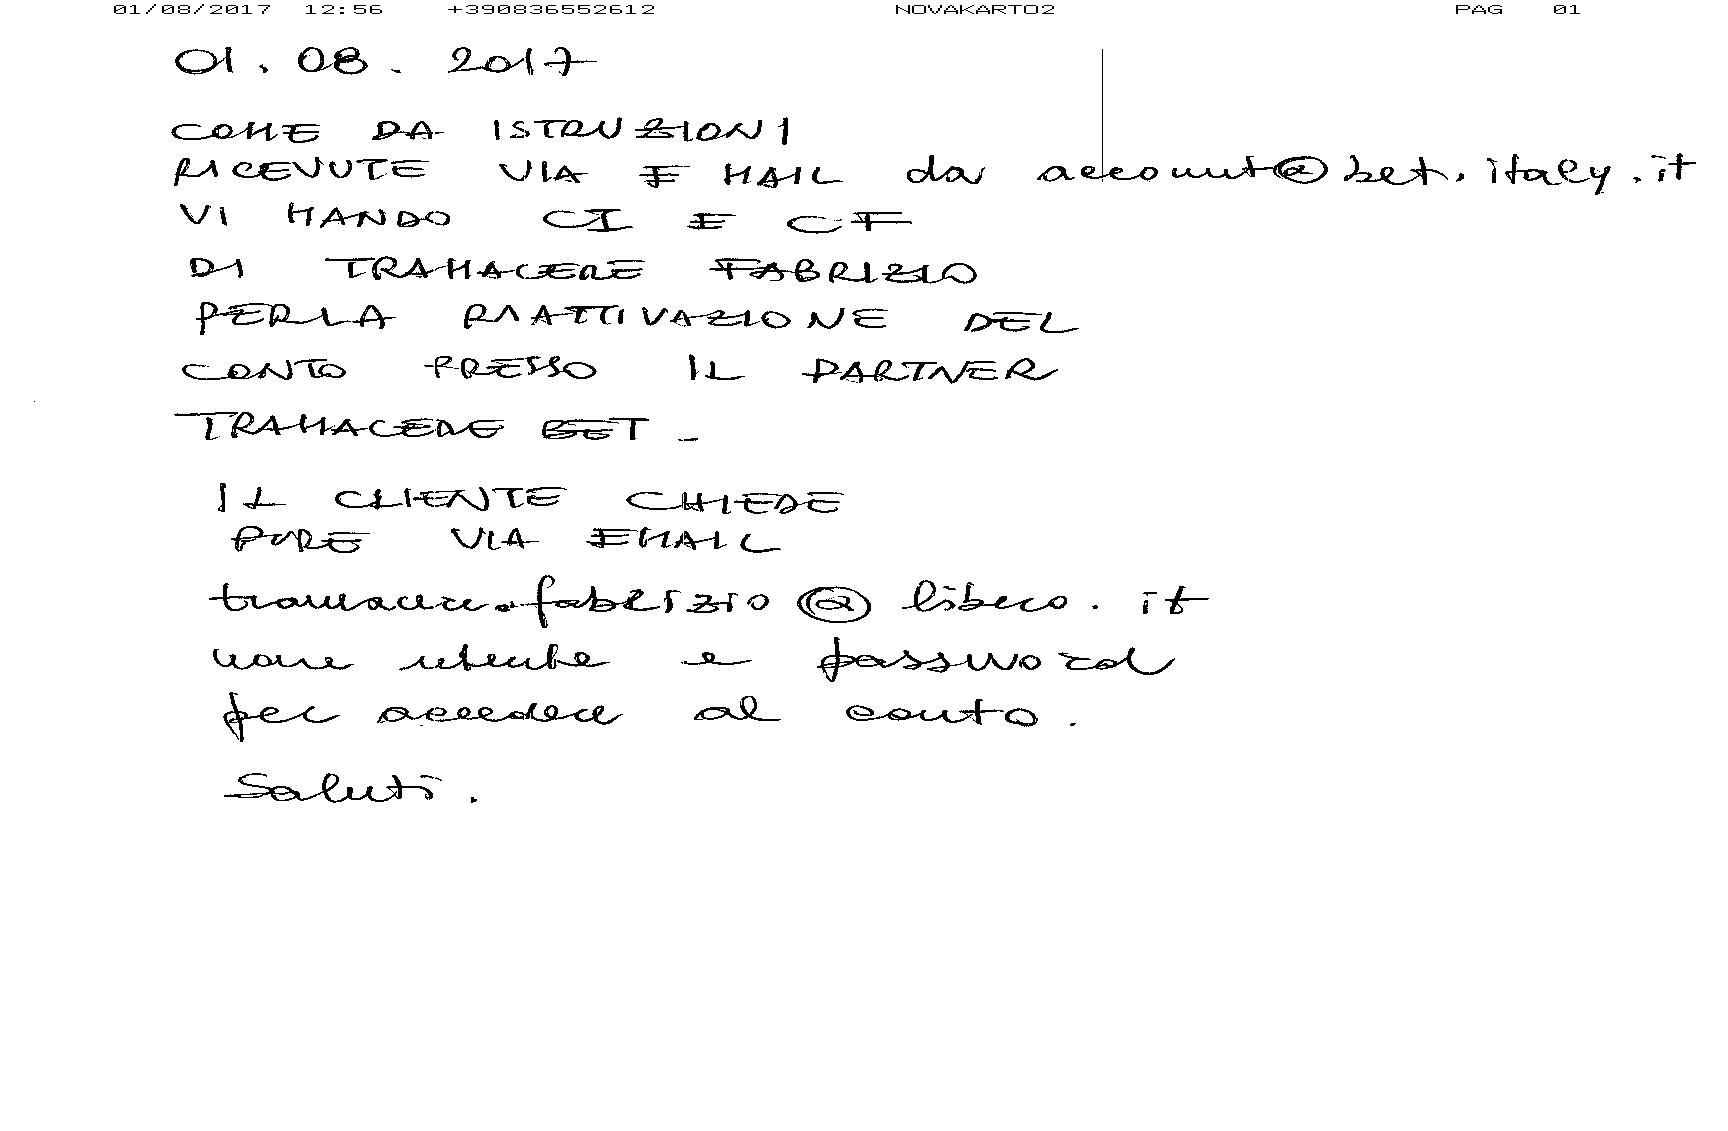 01/08/2017 12:56 +390836552612 NOVAKARTO2 PAG 01
01.08.2017
COME DA ISTRUZIONI
RICEVUTE VIA E MAIL da account@bet.italy.it
VI MANDO CI E CF
DI TRAMACERE FABRIZIO
PER LA RIATTIVAZIONE DEL
CONTO PRESSO IL PARTNER
TRAMACERE BET -
IL CLIENTE CHIEDE
PURE VIA EMAIL
tramacere.fabrizio@libero.it
nome utente e password
per accedere al conto.
Saluti.